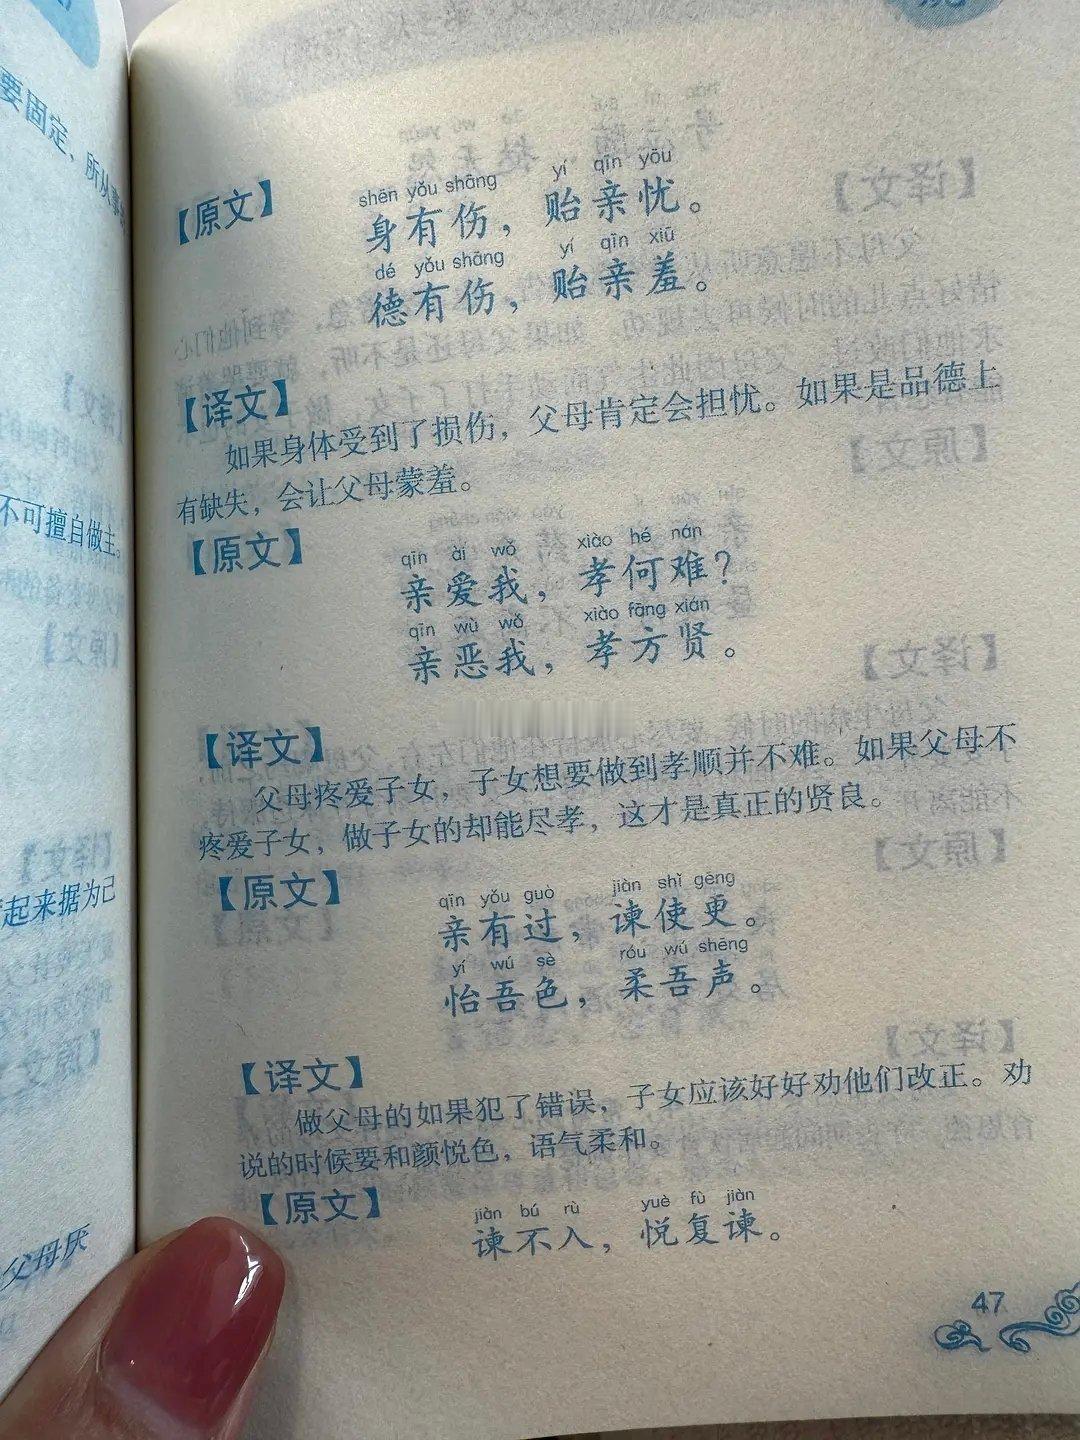 要固定、所从事
不可擅自做主。
起来据为己
父母厌
【原文】
shēn yǒu shāng yí qīn yōu
身有伤，贻亲忧。
dé yǒu shāng yí qīn xiū
德有伤，贻亲羞。
【译文】
如果身体受到了损伤，父母肯定会担忧。如果是品德上
有缺失，会让父母蒙羞。
【原文】
qīn ài wǒ xiào hé nán
亲爱我，孝何难？
qīn wù wǒ xiào fāng xián
亲恶我，孝方贤。
【译文】
父母疼爱子女，子女想要做到孝顺并不难。如果父母不
疼爱子女，做子女的却能尽孝，这才是真正的贤良。
【原文】
qīn yǒu guò jiàn shǐ gēng
亲有过，谏使更。
yí wú sè róu wú shēng
怡吾色，柔吾声。
【译文】
做父母的如果犯了错误，子女应该好好劝他们改正。劝
说的时候要和颜悦色，语气柔和。
【原文】
jiàn bú rù yuè fù jiàn
谏不入，悦复谏。
47